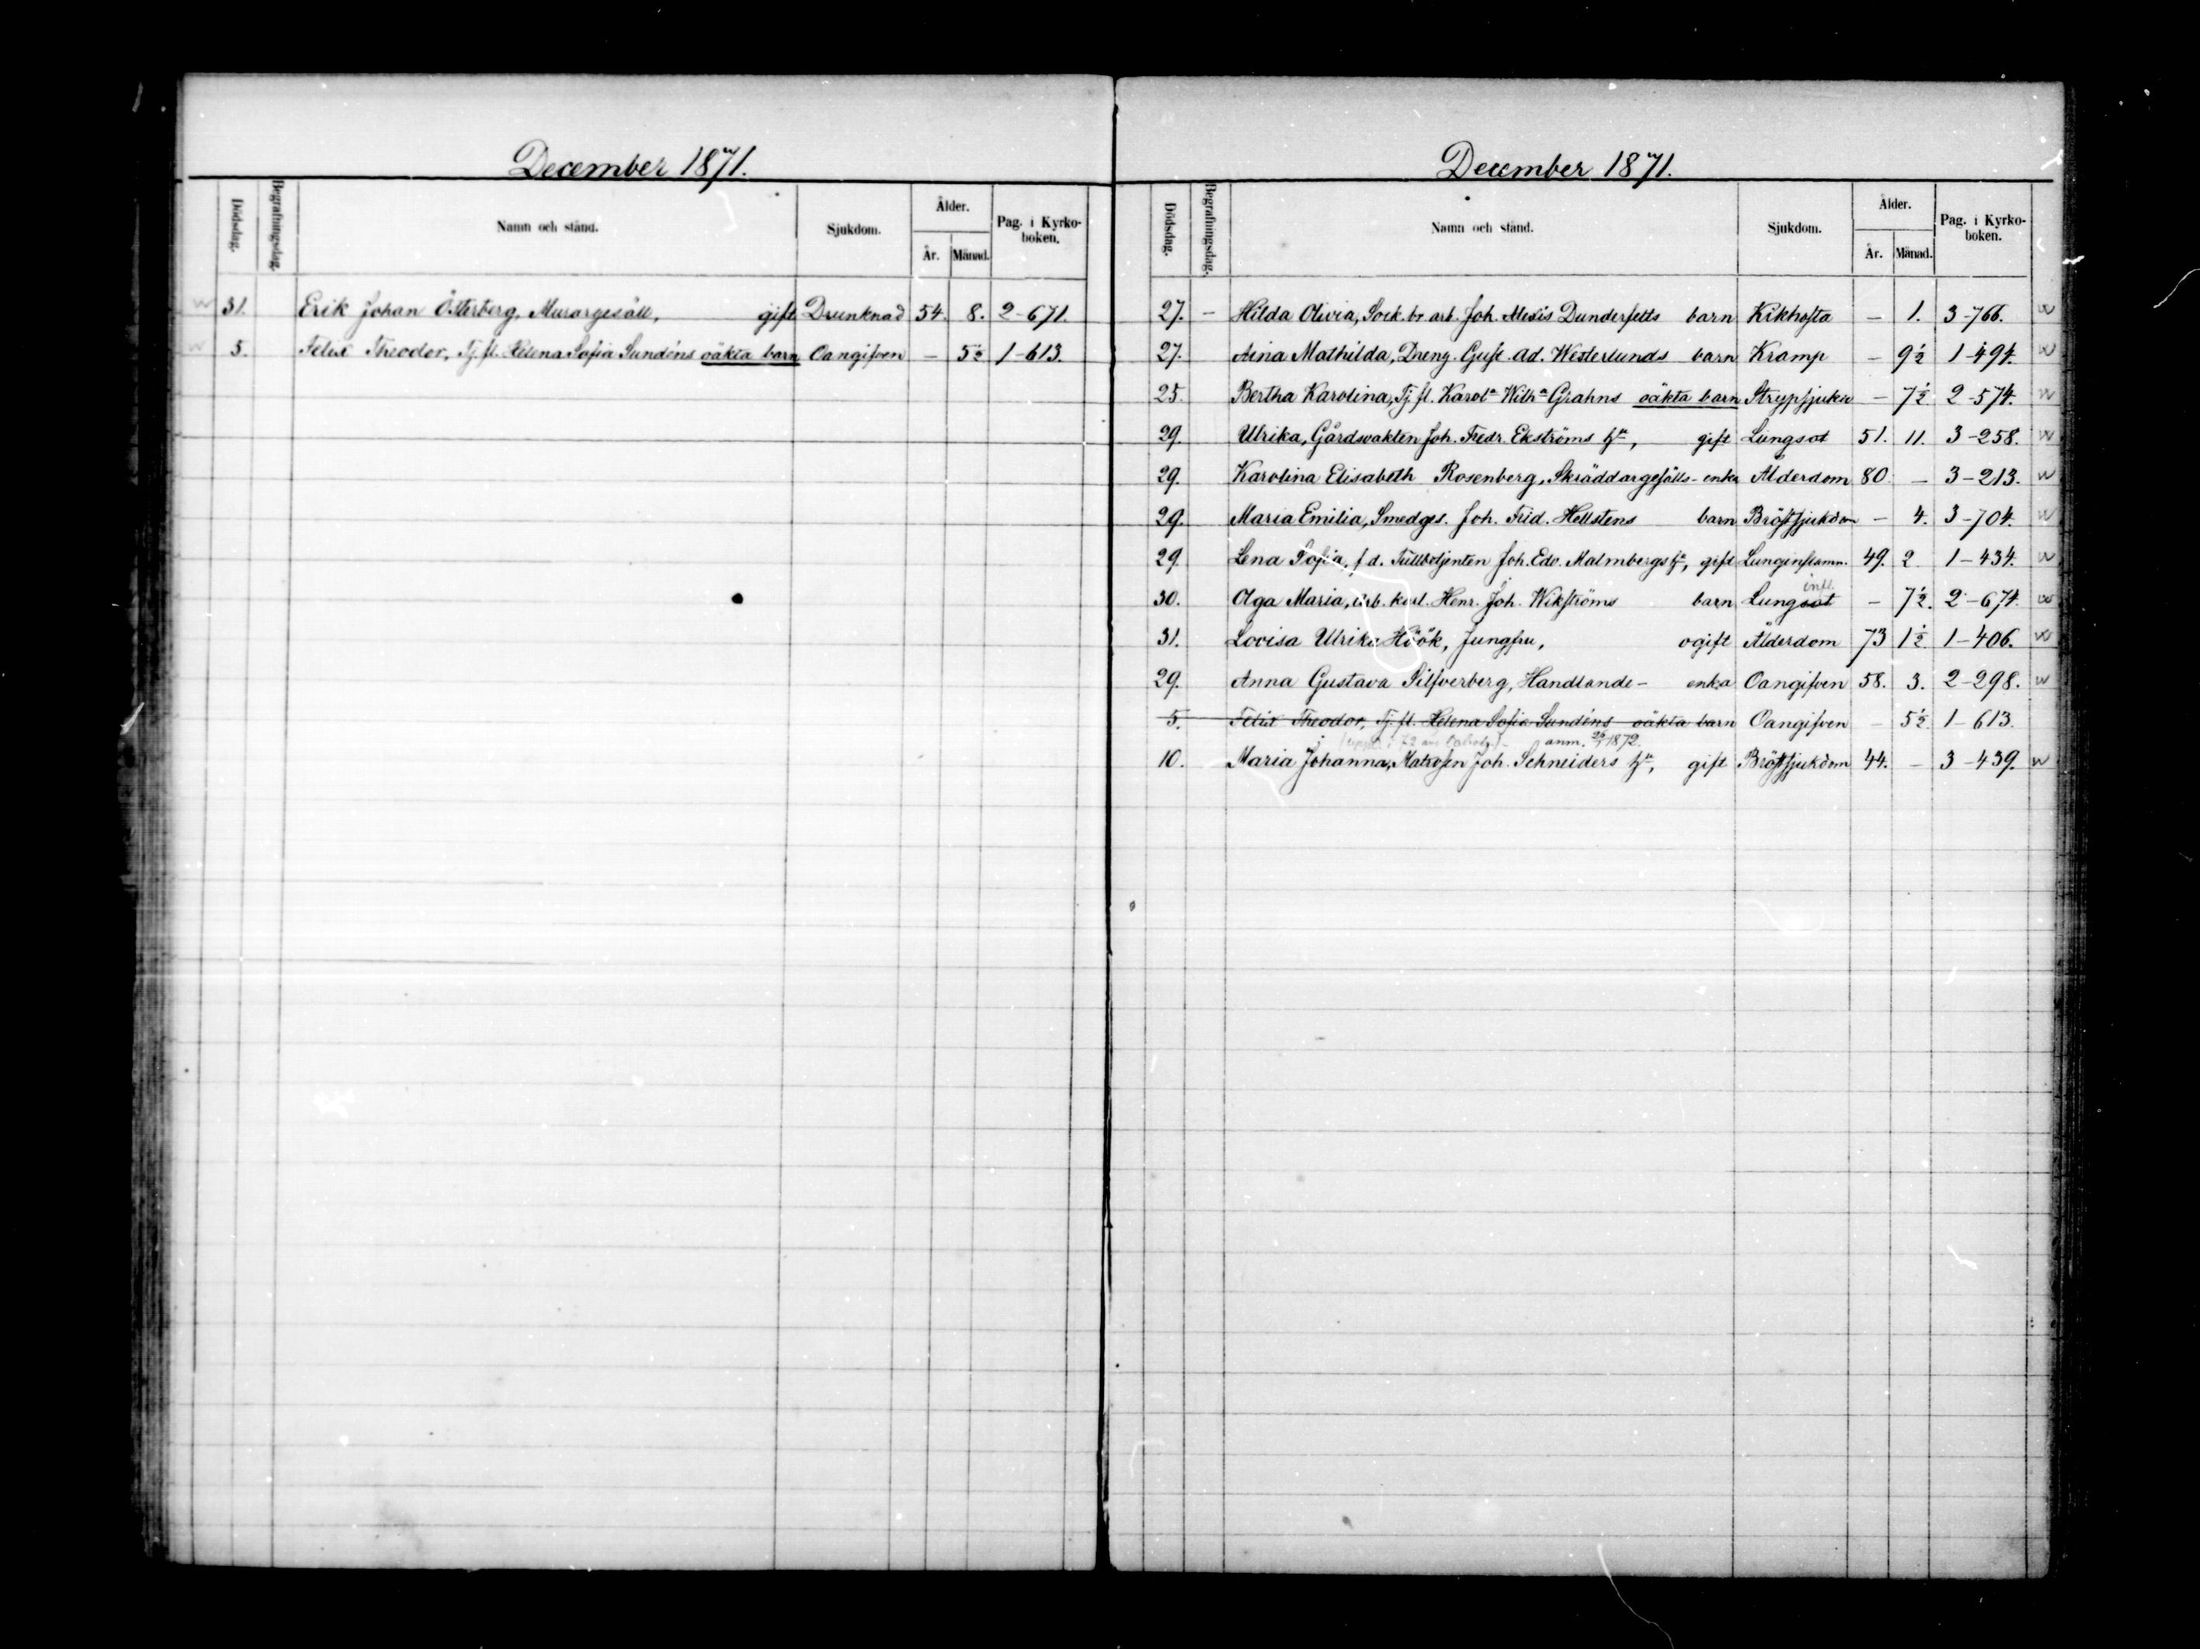 December 1871.
Dödsdag. Begrafningsdag. Namn och stånd. Sjukdom. Ålder. År. Månad. Pag. i Kyrko-boken.
31. Erik Johan Österberg, Murargesäll, gift Drunknad 54. 8. 2-671.
5. Felix Theodor, Tj. fl. Helena Sofia Sundéns oäkta barn Oangifven — 5½ 1-613.
December 1871.
Dödsdag. Begrafningsdag. Namn och stånd. Sjukdom. Ålder. År. Månad. Pag. i Kyrko-boken.
27. — Hilda Olivia, Sock. br. arb. Joh. Alexis Dunderfelts barn Kikhosta — 1. 3-766.
27. Aina Mathilda, Dreng. Gust. Ad. Westerlunds barn Kramp — 9½ 1-494.
25. Bertha Karolina, Tj. fl. Karola Wilha Grahns oäkta barn Strypsjuka — 7½ 2-574.
29. Ulrika, Gårdsvakten Joh. Fredr. Ekströms hu, gift Lungsot 51. 11. 3-258.
29. Karolina Elisabeth Rosenberg, Skräddargesälls- enka Ålderdom 80. — 3-213.
29. Maria Emilia, Smedges. Joh. Frid. Hellstens barn Bröstsjukdom — 4. 3-704.
29. Lena Sofia, f.d. Tullbetjenten Joh. Edv. Malmbergs hu, gift Lunginflamn. 49. 2. 1-434.
30. Olga Maria, Arb. karl. Henr. Joh. Wikströms barn Lungsot infl. — 7½. 2-674.
31. Lovisa Ulrika Höök, Jungfru, ogift Ålderdom 73 1½ 1-406.
29. Anna Gustava Silfverberg, Handlande- enka Oangifven 58. 3. 2-298.
5. Felix Theodor, Tj. fl. Helena Sofia Sundéns oäkta barn Oangifven — 5½ 1-613.
anm. 1872.
10. Maria Johanna, Matrosen Joh. Schneiders hu, gift Bröstsjukdom 44. — 3-439.